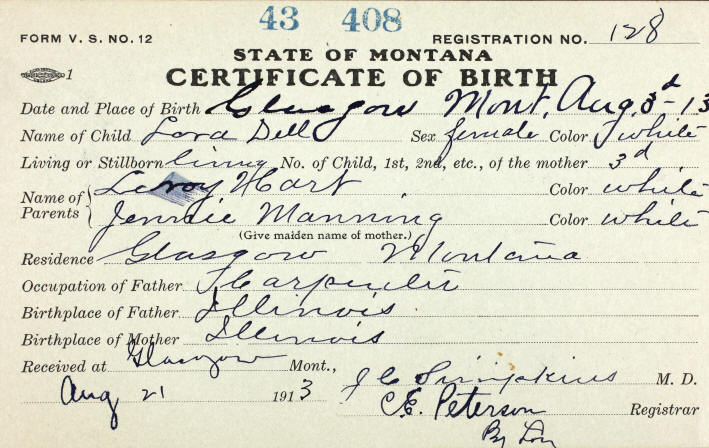 43 408
FORM V. S. NO. 12 REGISTRATION NO. 128
STATE OF MONTANA
1 CERTIFICATE OF BIRTH
Date and Place of Birth Glasgow Mont. Aug. 3d-13
Name of Child Lora Dell Sex female Color white
Living or Stillborn living No. of Child, 1st, 2nd, etc., of the mother 3d
Name of Parents Leroy Hart Color white
Jennie Manning Color white
(Give maiden name of mother.)
Residence Glasgow Montana
Occupation of Father Carpenter
Birthplace of Father Illinois
Birthplace of Mother Illinois
Received at Glasgow Mont.,
Aug 21 1913 J C Simpkins M. D.
C.E. Peterson Registrar
By